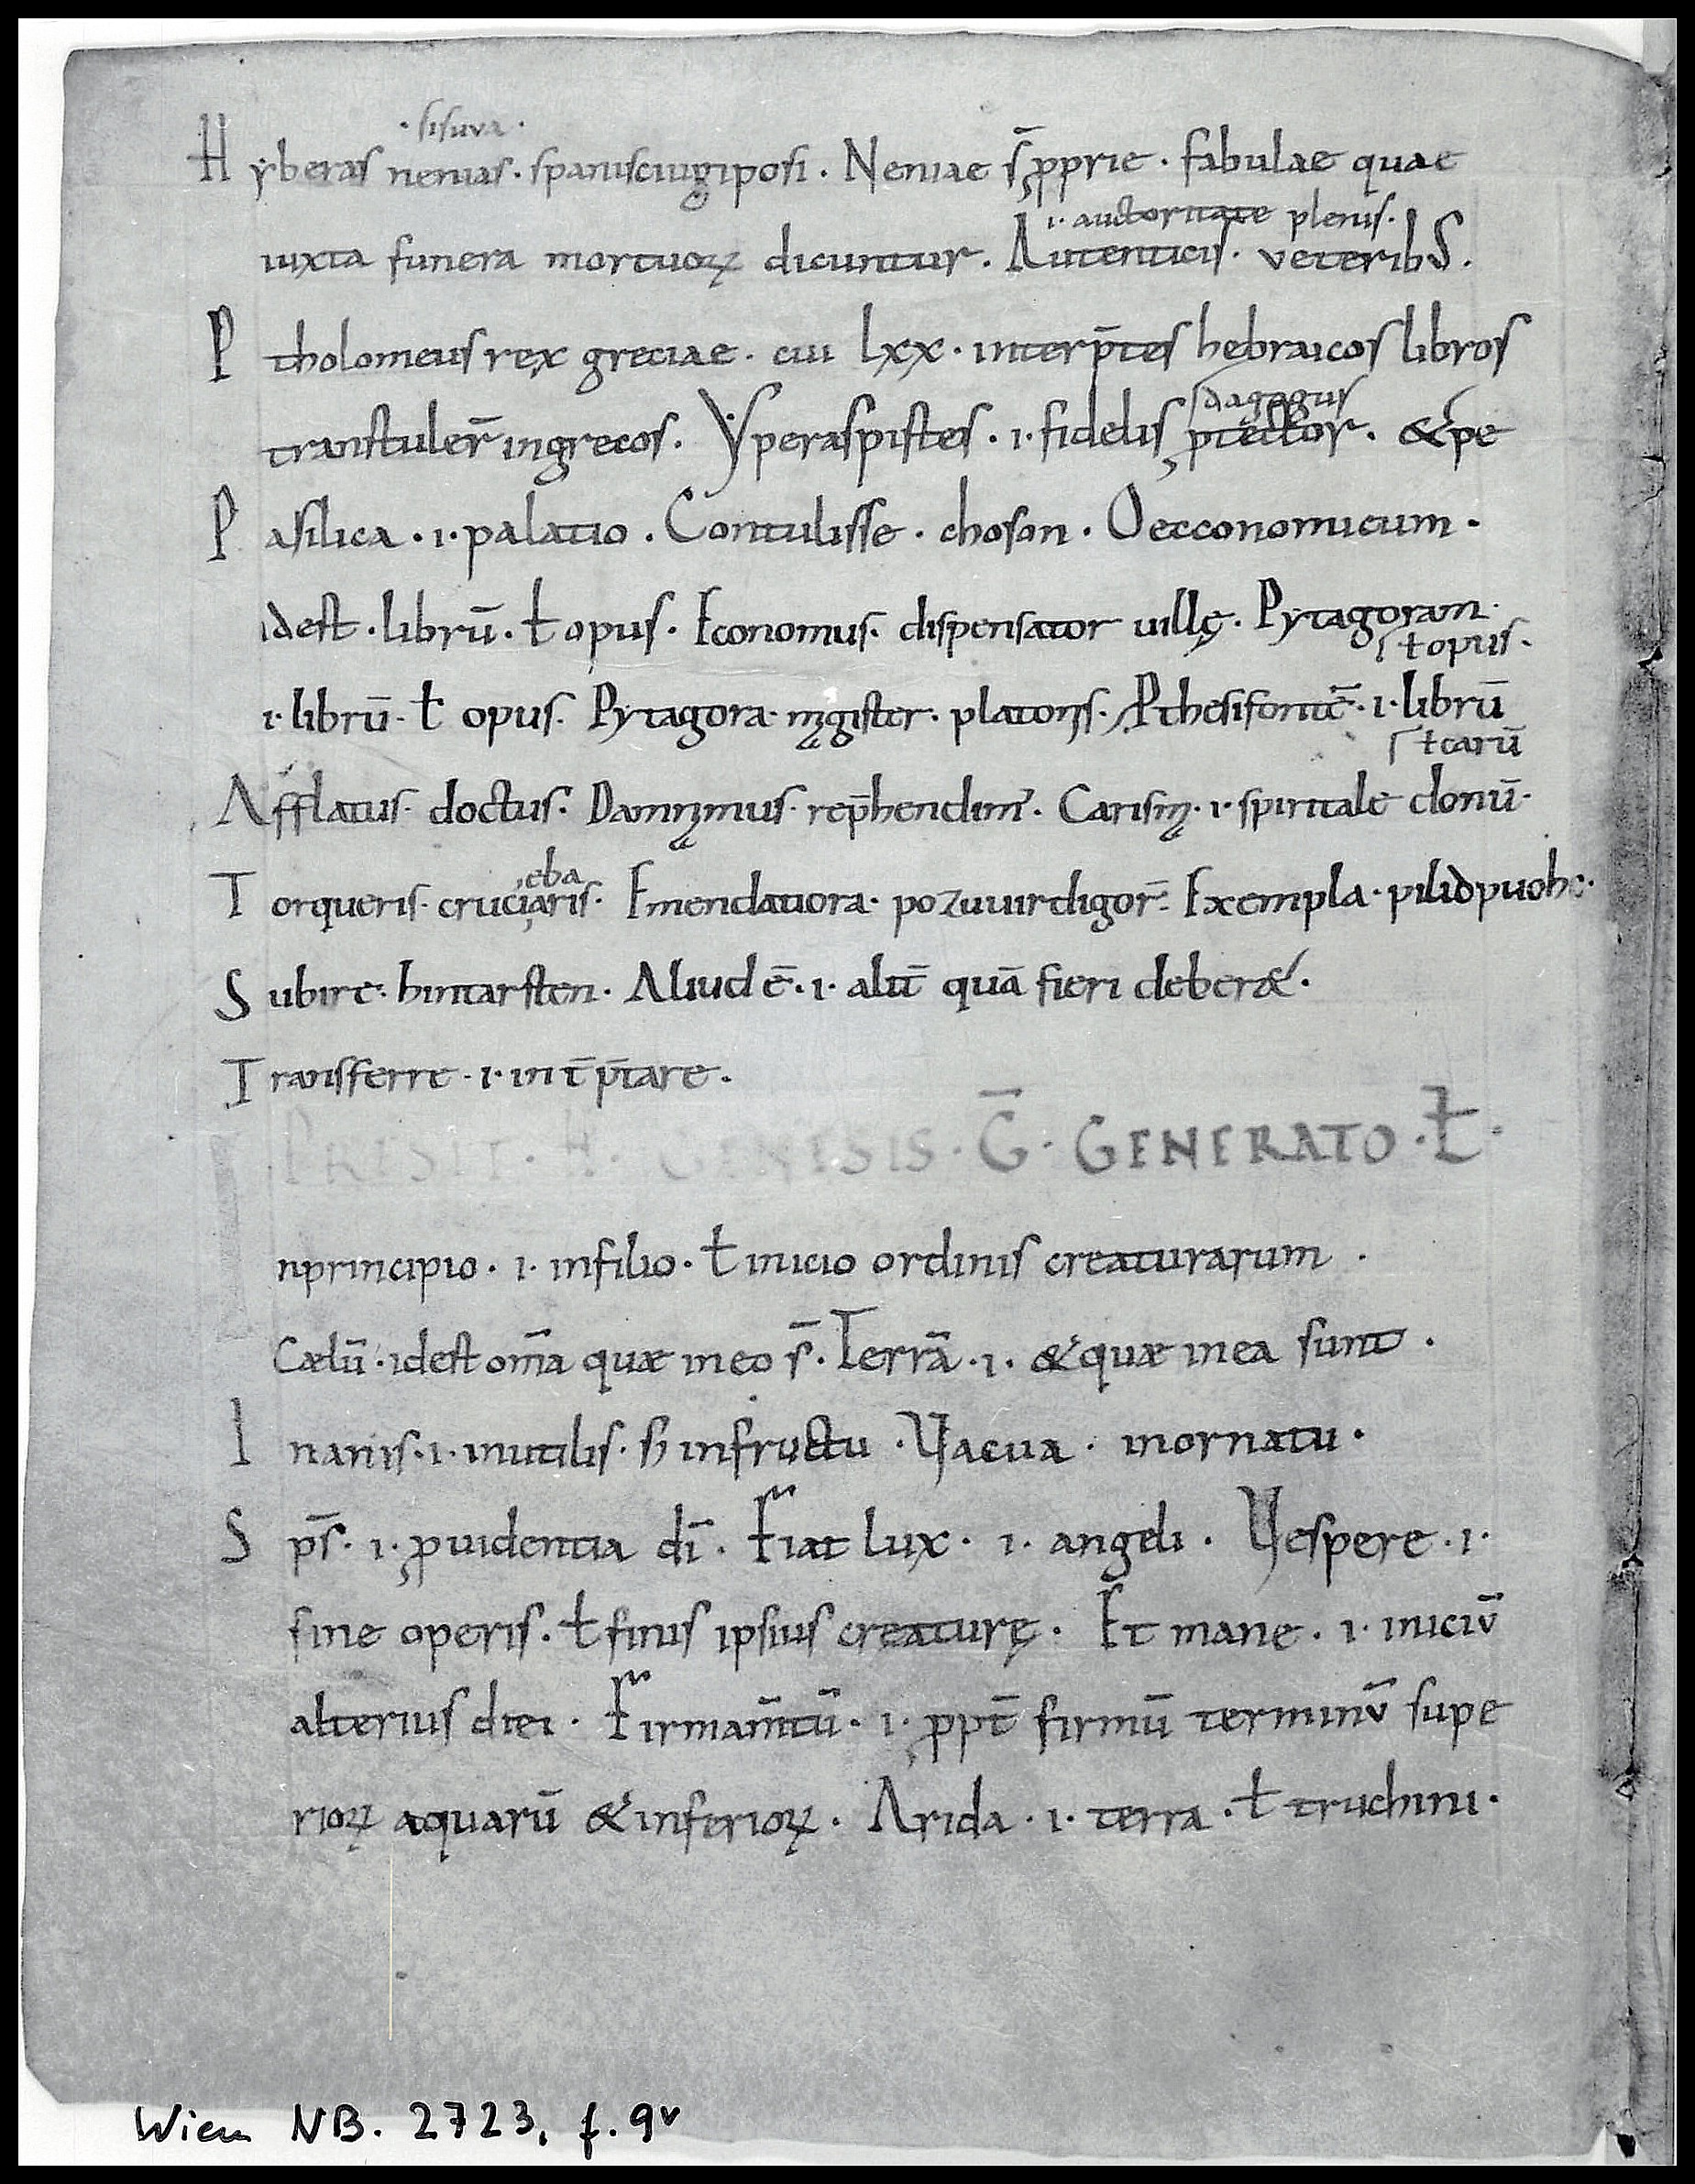 · sisuva ·
Hyberas nenias · spaniscuugiposi · Neniae s̄ ꝓprie · fabulae quae
·i· auctoritate plenis ·
iuxta funera mortuoꝝ dicuntur · Autenticis · veteribS ·
Ptholomeus rex greciae · cui lxx · interp̄tes hebraicos libros
dagogus
transtuler̄ ingrecos · Yperaspistes · i · fidelis ꝓtector · & pe
Pasilica · i · palatio · Contulisse · choson · Oecconomicum ·
idest · librū · ł opus · Economus · dispensator uillę · Pytagoran ·
ł opus ·
i · librū · ł opus · Pytagora · mgister · platonis · Pthesifontē · i · librū
ł carū
Afflatus · doctus · Damnmus · rep̄hendim̄ · Carism · i · spiritale donū ·
eba
Torqueris · cruciaris · Emendatiora · pozuuirdigor̄ · Exempla · pilidpuohc ·
Subire · hintarsten · Aliud ē · i · alit̄ quā fieri deber& ·
Transferre · i · int̄p̄tare ·
PRISIT · H · GENESIS · Ḡ · GENERATO · ł ·
nprincipio · i · infilio · ł inicio ordinis creaturarum ·
Cælū · idest om̄a quæ ineo s̄ · Terrā · i · & quæ inea sunt ·
Inanis · i · inutilis · ẜ infructu · Vacua · inornatu ·
Sps̄ · i · ꝓuidentia dī · Fiat lux · i · angeli · Vespere · i ·
fine operis · ł finis ipsius creaturę · Et mane · i · iniciū
alterius diei · Firmam̄tū · i · ꝓpt̄ firmū terminū supe
rioꝝ aquarū & inferioꝝ · Arida · i · terra · ł truchini ·
Wien NB. 2723, f. 9v